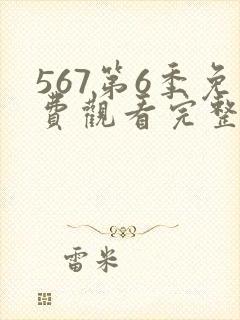 567第6季免
費觀看完整
雷米